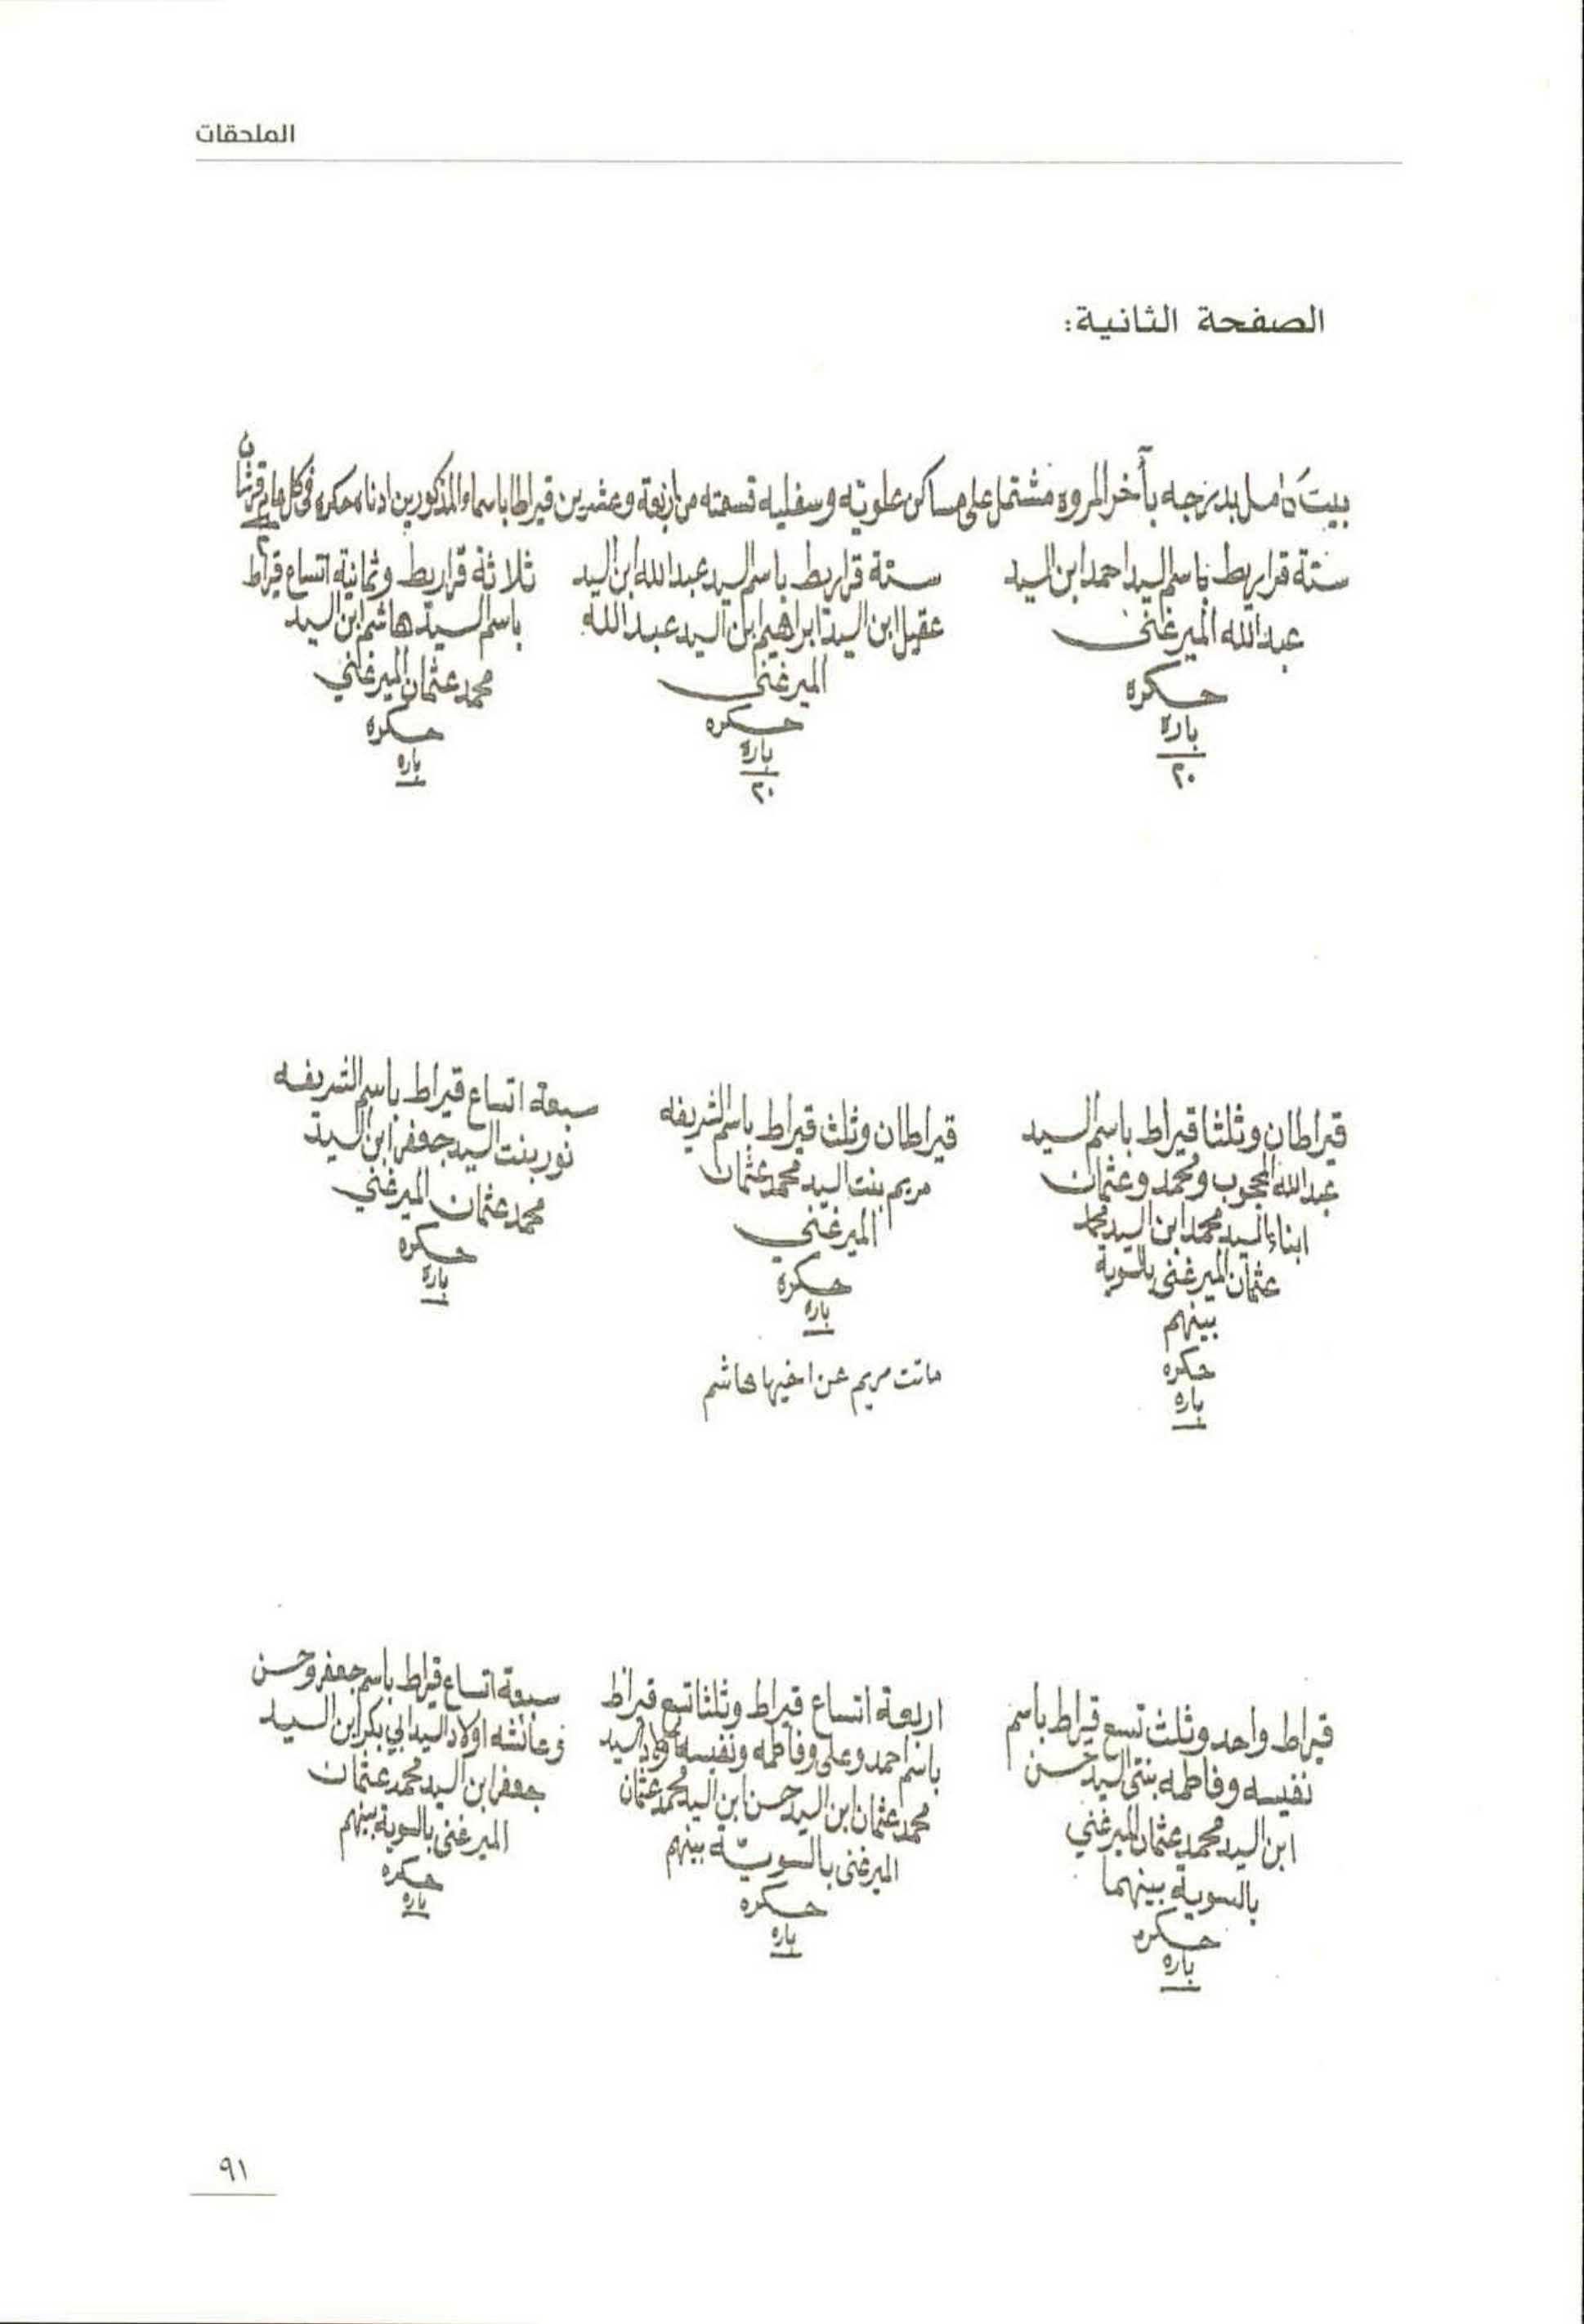 الملحقات
الصفحة الثانية:
بيت كامل بدبزجه بآخر المروه مشتمل على مساكن علويه وسفليه قسمته من اربعة وعشرين قيراطا باسماء المذكورين ادناه حكره في كل عام قرشان
ستة قراريط باسم السيد احمد ابن السيد
عبد الله الميرغني
حكره
باره
٢٠
ستة قراريط باسم السيد عبد الله ابن السيد
عقيل ابن السيد ابراهيم ابن السيد عبد الله
الميرغني
حكره
باره
٢٠
ثلاثة قراريط وثمانية اتساع قراط
باسم السيد هاشم ابن السيد
محمد عثمان الميرغني
حكره
باره
قيراطان وثلثا قيراط باسم السيد
عبد الله المحجوب ومحمد وعثمان
ابناء السيد محمد ابن السيد محمد
عثمان الميرغني بالسوية
بينهم
حكره
باره
قيراطان وثلث قيراط باسم الشريفه
مريم بنت السيد محمد عثمان
الميرغني
حكره
باره
ماتت مريم عن اخيها هاشم
سبعة اتساع قيراط باسم الشريفه
نور بنت السيد جعفر ابن السيد
محمد عثمان الميرغني
حكره
باره
قيراط واحد وثلث تسع قيراط باسم
نفيسه وفاطمه بنتي السيد حسن
ابن السيد محمد عثمان الميرغني
بالسوية بينهما
حكره
باره
اربعة اتساع قيراط وثلثا تسع قيراط
باسم احمد وعلي وفاطمه ونفيسه اولاد السيد
محمد عثمان ابن السيد حسن ابن السيد محمد عثمان
الميرغني بالسويّة بينهم
حكره
باره
سبعة اتساع قيراط باسم جعفر وحسن
وعائشه اولاد السيد ابي بكر ابن السيد
جعفر ابن السيد محمد عثمان
الميرغني بالسوية بينهم
حكره
باره
٩١